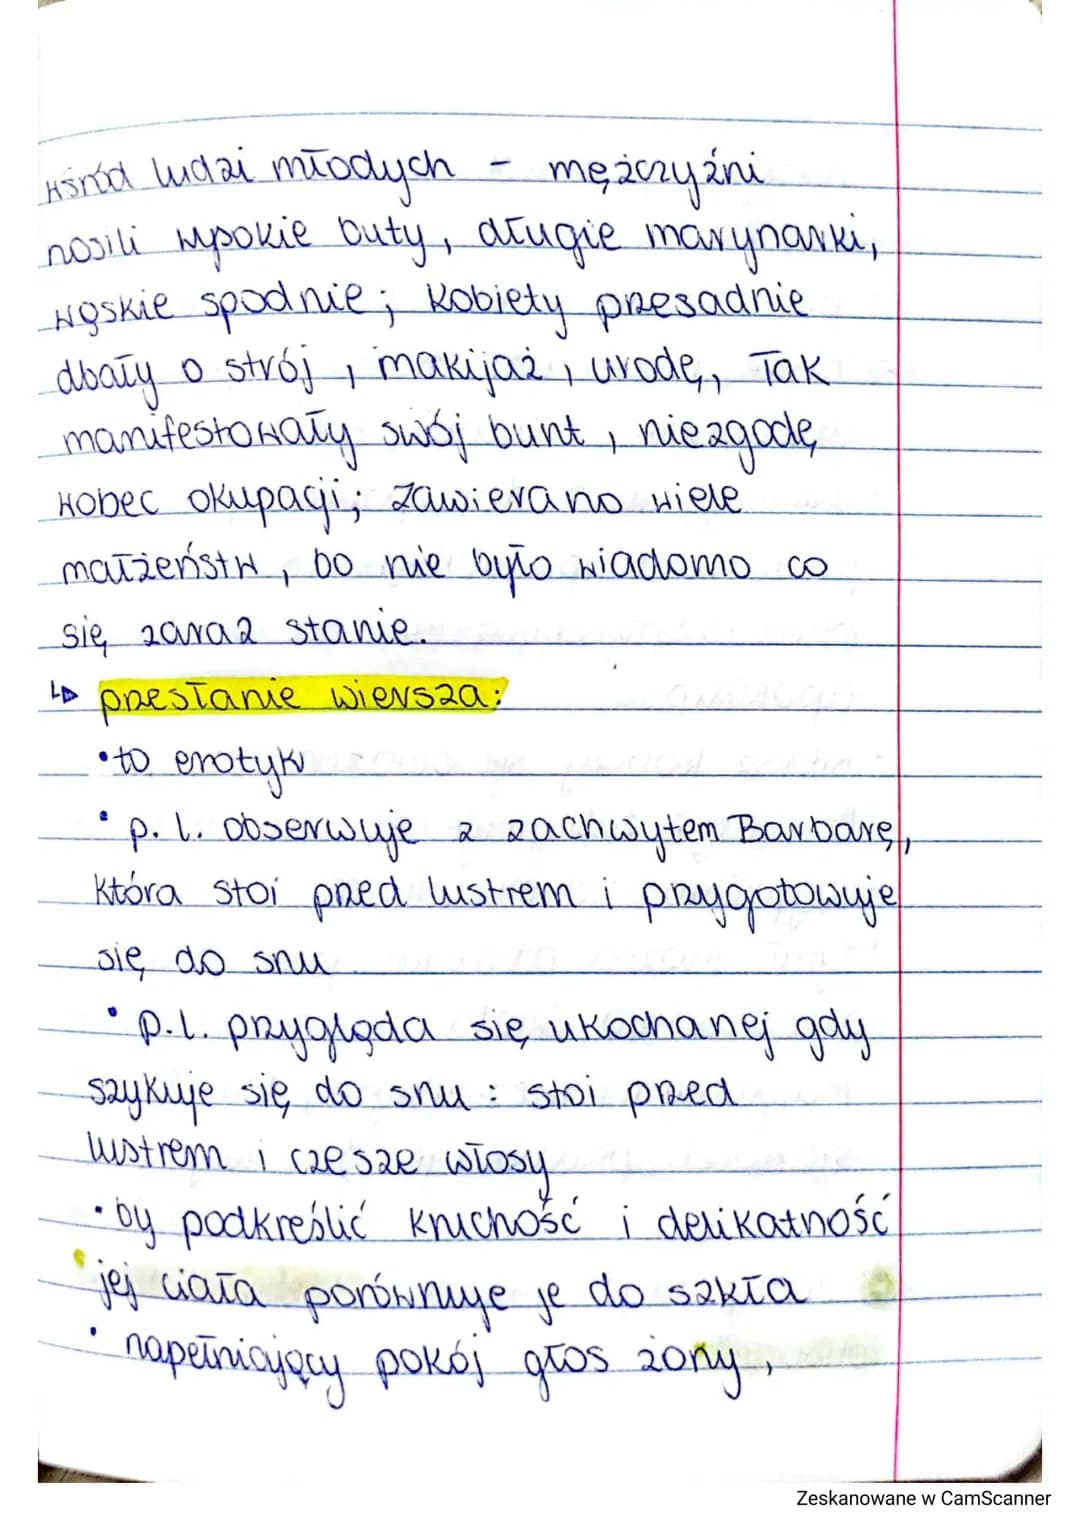 wśród ludzi młodych - mężczyźni
nosili wysokie buty, długie marynarki,
wąskie spodnie; kobiety przesadnie
dbały o strój, makijaż, urodę, Tak
manifestowały swój bunt, niezgodę
wobec okupacji; zawierano wiele
małżeństw, bo nie było wiadomo co
się zaraz stanie.
↳ przesłanie wiersza:
•to erotyk
• p. l. obserwuje z zachwytem Barbarę,
która stoi przed lustrem i przygotowuje
się do snu
• p.l. przygląda się ukochanej gdy
szykuje się do snu : stoi przed
lustrem i czesze włosy
• by podkreślić kruchość i delikatność
jej ciała porównuje je do szkła
• napełniający pokój głos żony,
Zeskanowane w CamScanner